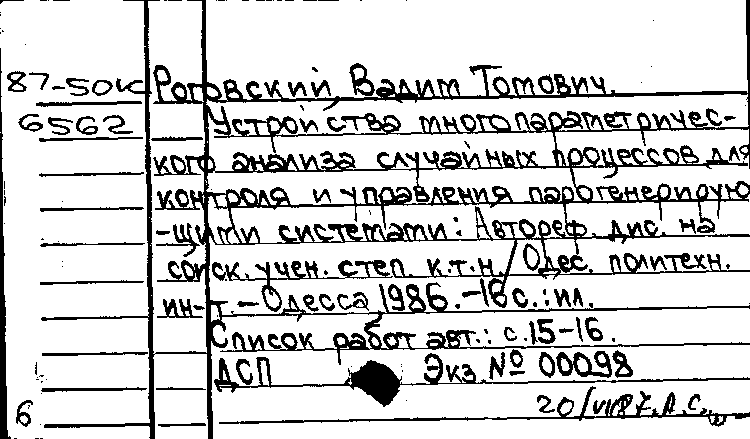 87-50к Роговский, Вадим Томович.
6562 Устройства многопараметричес-
кого анализа случайных процессов для
контроля и управления парогенерирую
-щими системами: Автореф. дис. на
соиск. учен. степ. к.т.н. / Одес. политехн.
ин-т. - Одесса, 1986. - 16 с. : ил.
Список работ авт.: с. 15-16.
ДСП Экз. № 00098
6 20/VII 87. А.С.